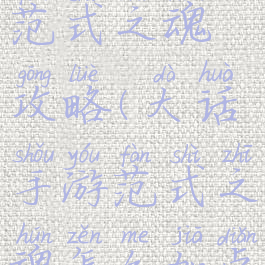 范式之魂
gōng lüè dà huà
攻略(大话
shǒu yóu fàn shì zhī
手游范式之
hún zěn me jiā diǎn
魂怎么加点